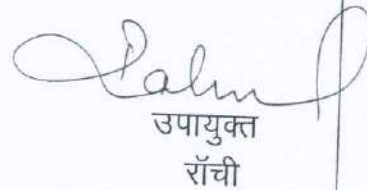 उपायुक्त
रॉची